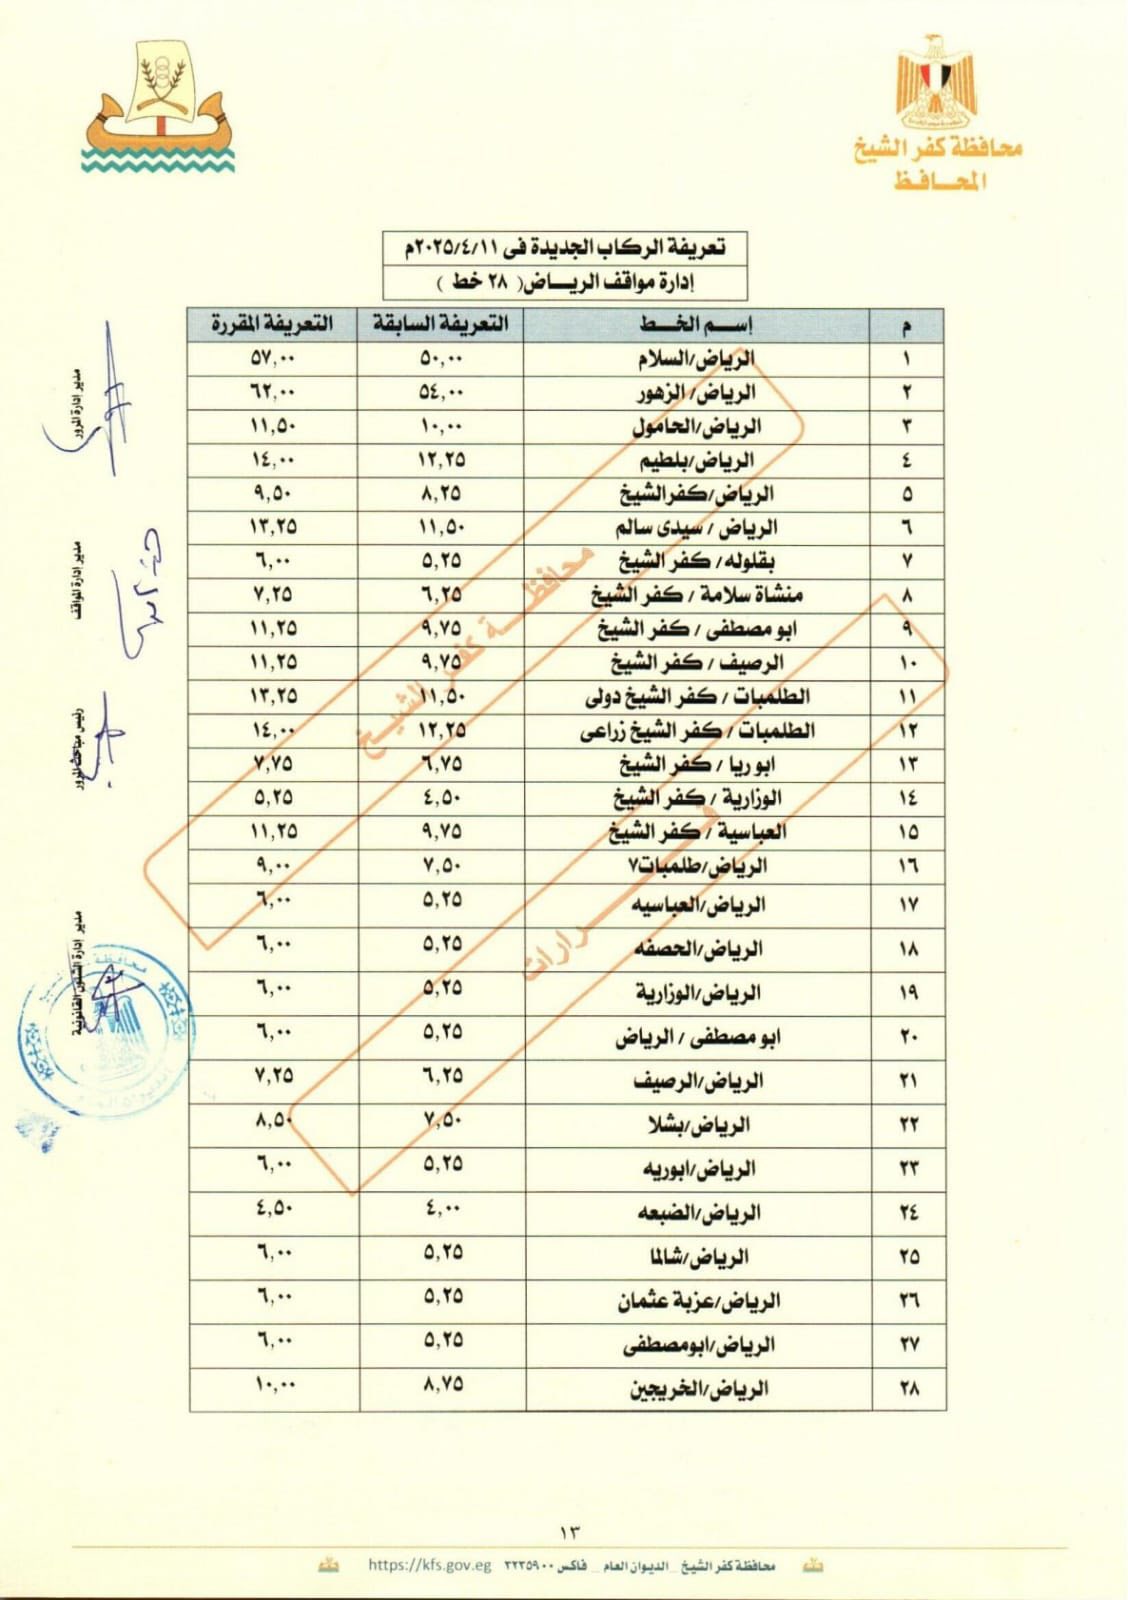 محافظة كفر الشيخ
المحافظ
تعريفة الركاب الجديدة فى ٢٠٢٥/٤/١١م
إدارة مواقف الرياض( ٢٨ خط )
م إسم الخط التعريفة السابقة التعريفة المقررة
١ الرياض/السلام ٥٠,٠٠ ٥٧,٠٠
٢ الرياض/ الزهور ٥٤,٠٠ ٦٢,٠٠
٣ الرياض/الحامول ١٠,٠٠ ١١,٥٠
٤ الرياض/بلطيم ١٢,٢٥ ١٤,٠٠
٥ الرياض/كفرالشيخ ٨,٢٥ ٩,٥٠
٦ الرياض / سيدى سالم ١١,٥٠ ١٣,٢٥
٧ بقلوله/ كفر الشيخ ٥,٢٥ ٦,٠٠
٨ منشاة سلامة / كفر الشيخ ٦,٢٥ ٧,٢٥
٩ ابو مصطفى / كفر الشيخ ٩,٧٥ ١١,٢٥
١٠ الرصيف / كفر الشيخ ٩,٧٥ ١١,٢٥
١١ الطلمبات / كفر الشيخ دولى ١١,٥٠ ١٣,٢٥
١٢ الطلمبات / كفر الشيخ زراعى ١٢,٢٥ ١٤,٠٠
١٣ ابو ريا / كفر الشيخ ٦,٧٥ ٧,٧٥
١٤ الوزارية / كفر الشيخ ٤,٥٠ ٥,٢٥
١٥ العباسية / كفر الشيخ ٩,٧٥ ١١,٢٥
١٦ الرياض/طلمبات٧ ٧,٥٠ ٩,٠٠
١٧ الرياض/العباسيه ٥,٢٥ ٦,٠٠
١٨ الرياض/الحصفه ٥,٢٥ ٦,٠٠
١٩ الرياض/الوزارية ٥,٢٥ ٦,٠٠
٢٠ ابو مصطفى / الرياض ٥,٢٥ ٦,٠٠
٢١ الرياض/الرصيف ٦,٢٥ ٧,٢٥
٢٢ الرياض/بشلا ٧,٥٠ ٨,٥٠
٢٣ الرياض/ابوريه ٥,٢٥ ٦,٠٠
٢٤ الرياض/الضبعه ٤,٠٠ ٤,٥٠
٢٥ الرياض/شالما ٥,٢٥ ٦,٠٠
٢٦ الرياض/عزبة عثمان ٥,٢٥ ٦,٠٠
٢٧ الرياض/ابومصطفى ٥,٢٥ ٦,٠٠
٢٨ الرياض/الخريجين ٨,٧٥ ١٠,٠٠
محافظة كفر الشيخ
قرارات
مدير إدارة المرور
مدير إدارة المواقف
رئيس مباحث المرور
مدير إدارة الشئون القانونية
١٣
محافظة كفر الشيخ _ الديوان العام _ فاكس ٣٢٣٥٩٠٠ https://kfs.gov.eg